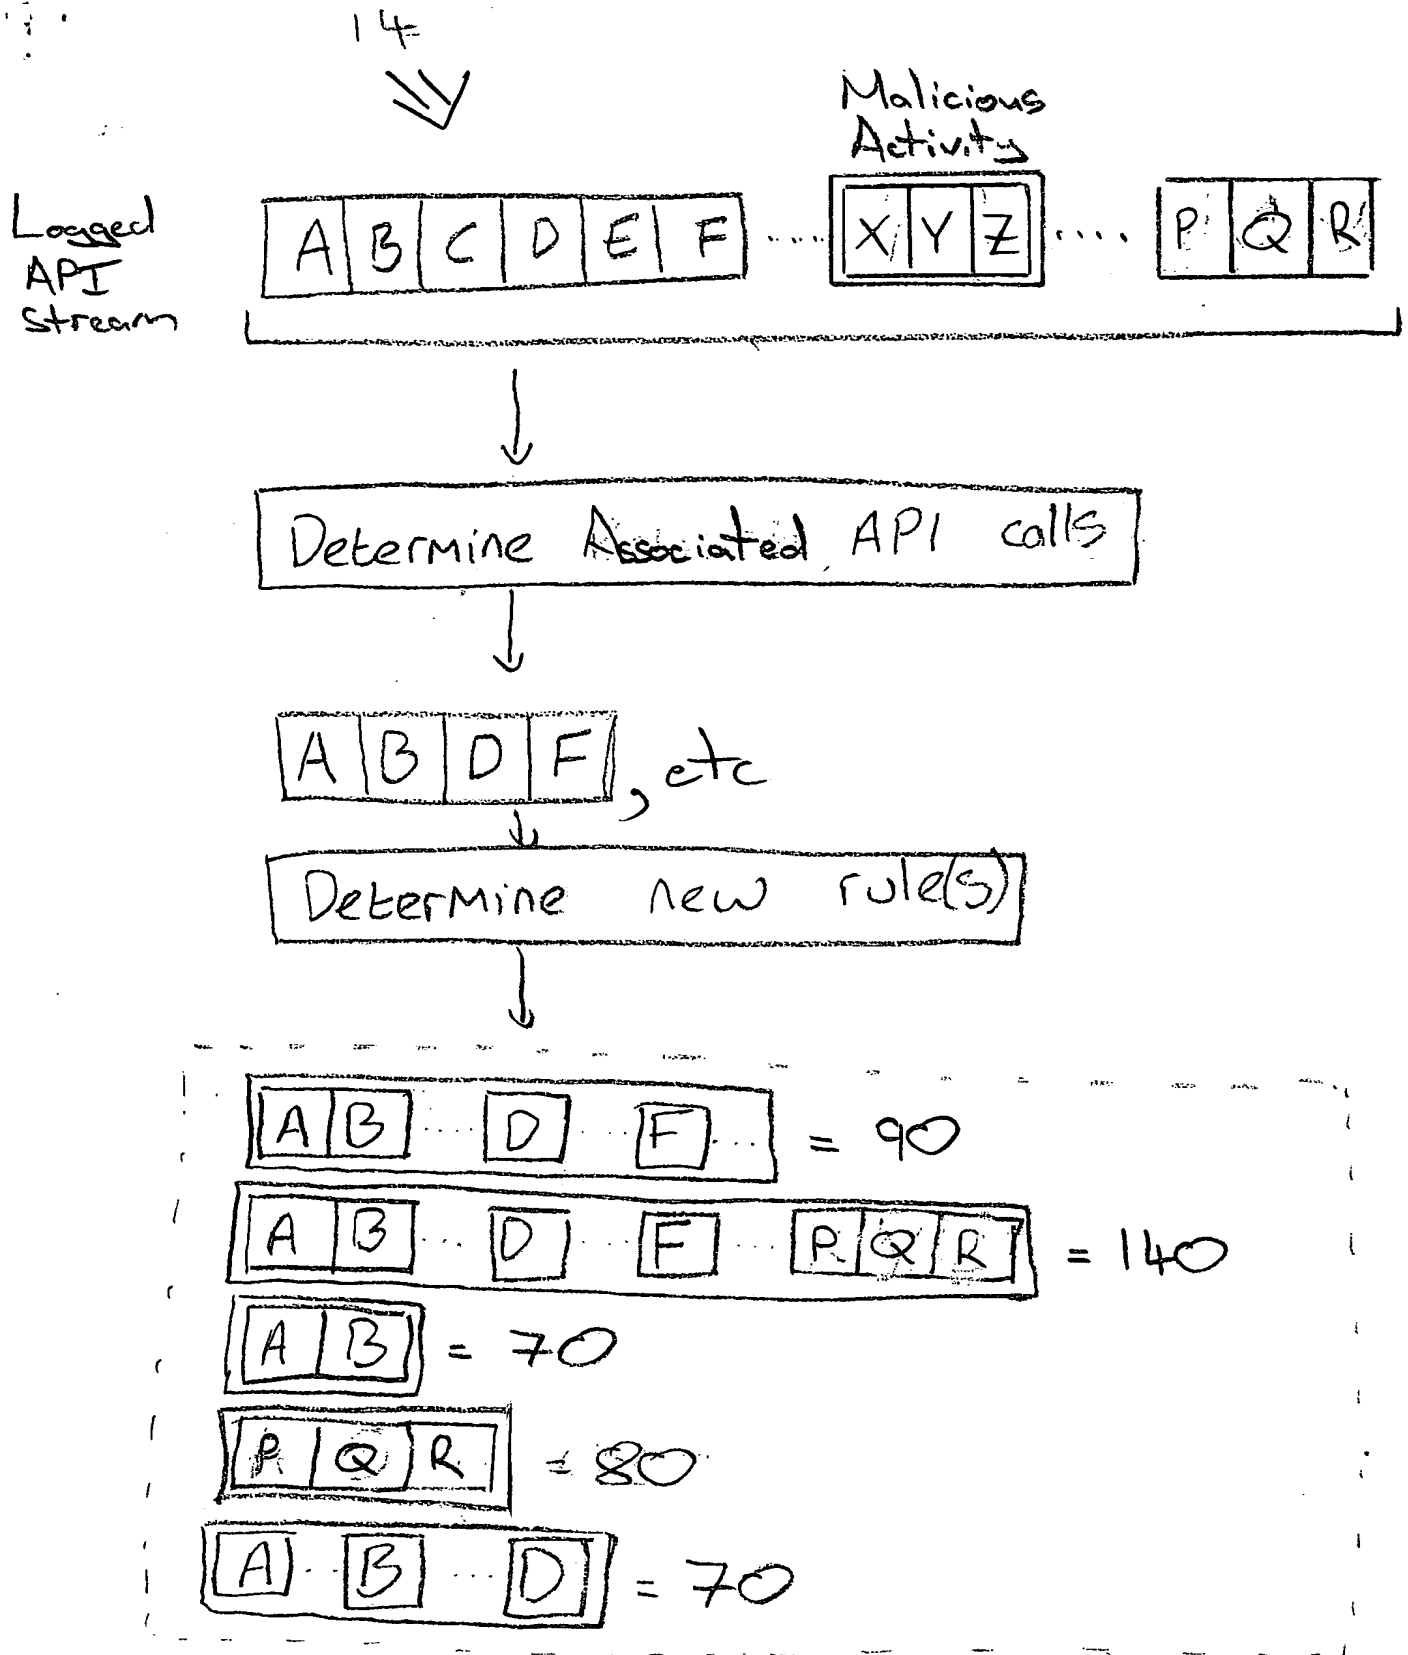 14
Malicious
Activity
Logged
API
Stream
A B C D E F ..... X Y Z ..... P Q R
Determine Associated API calls
A B D F , etc
Determine new rule(s)
A B ..... D .... F .... = 90
A B ... D .... F .... P Q R = 140
A B = 70
P Q R = 80
A ... B .... D = 70